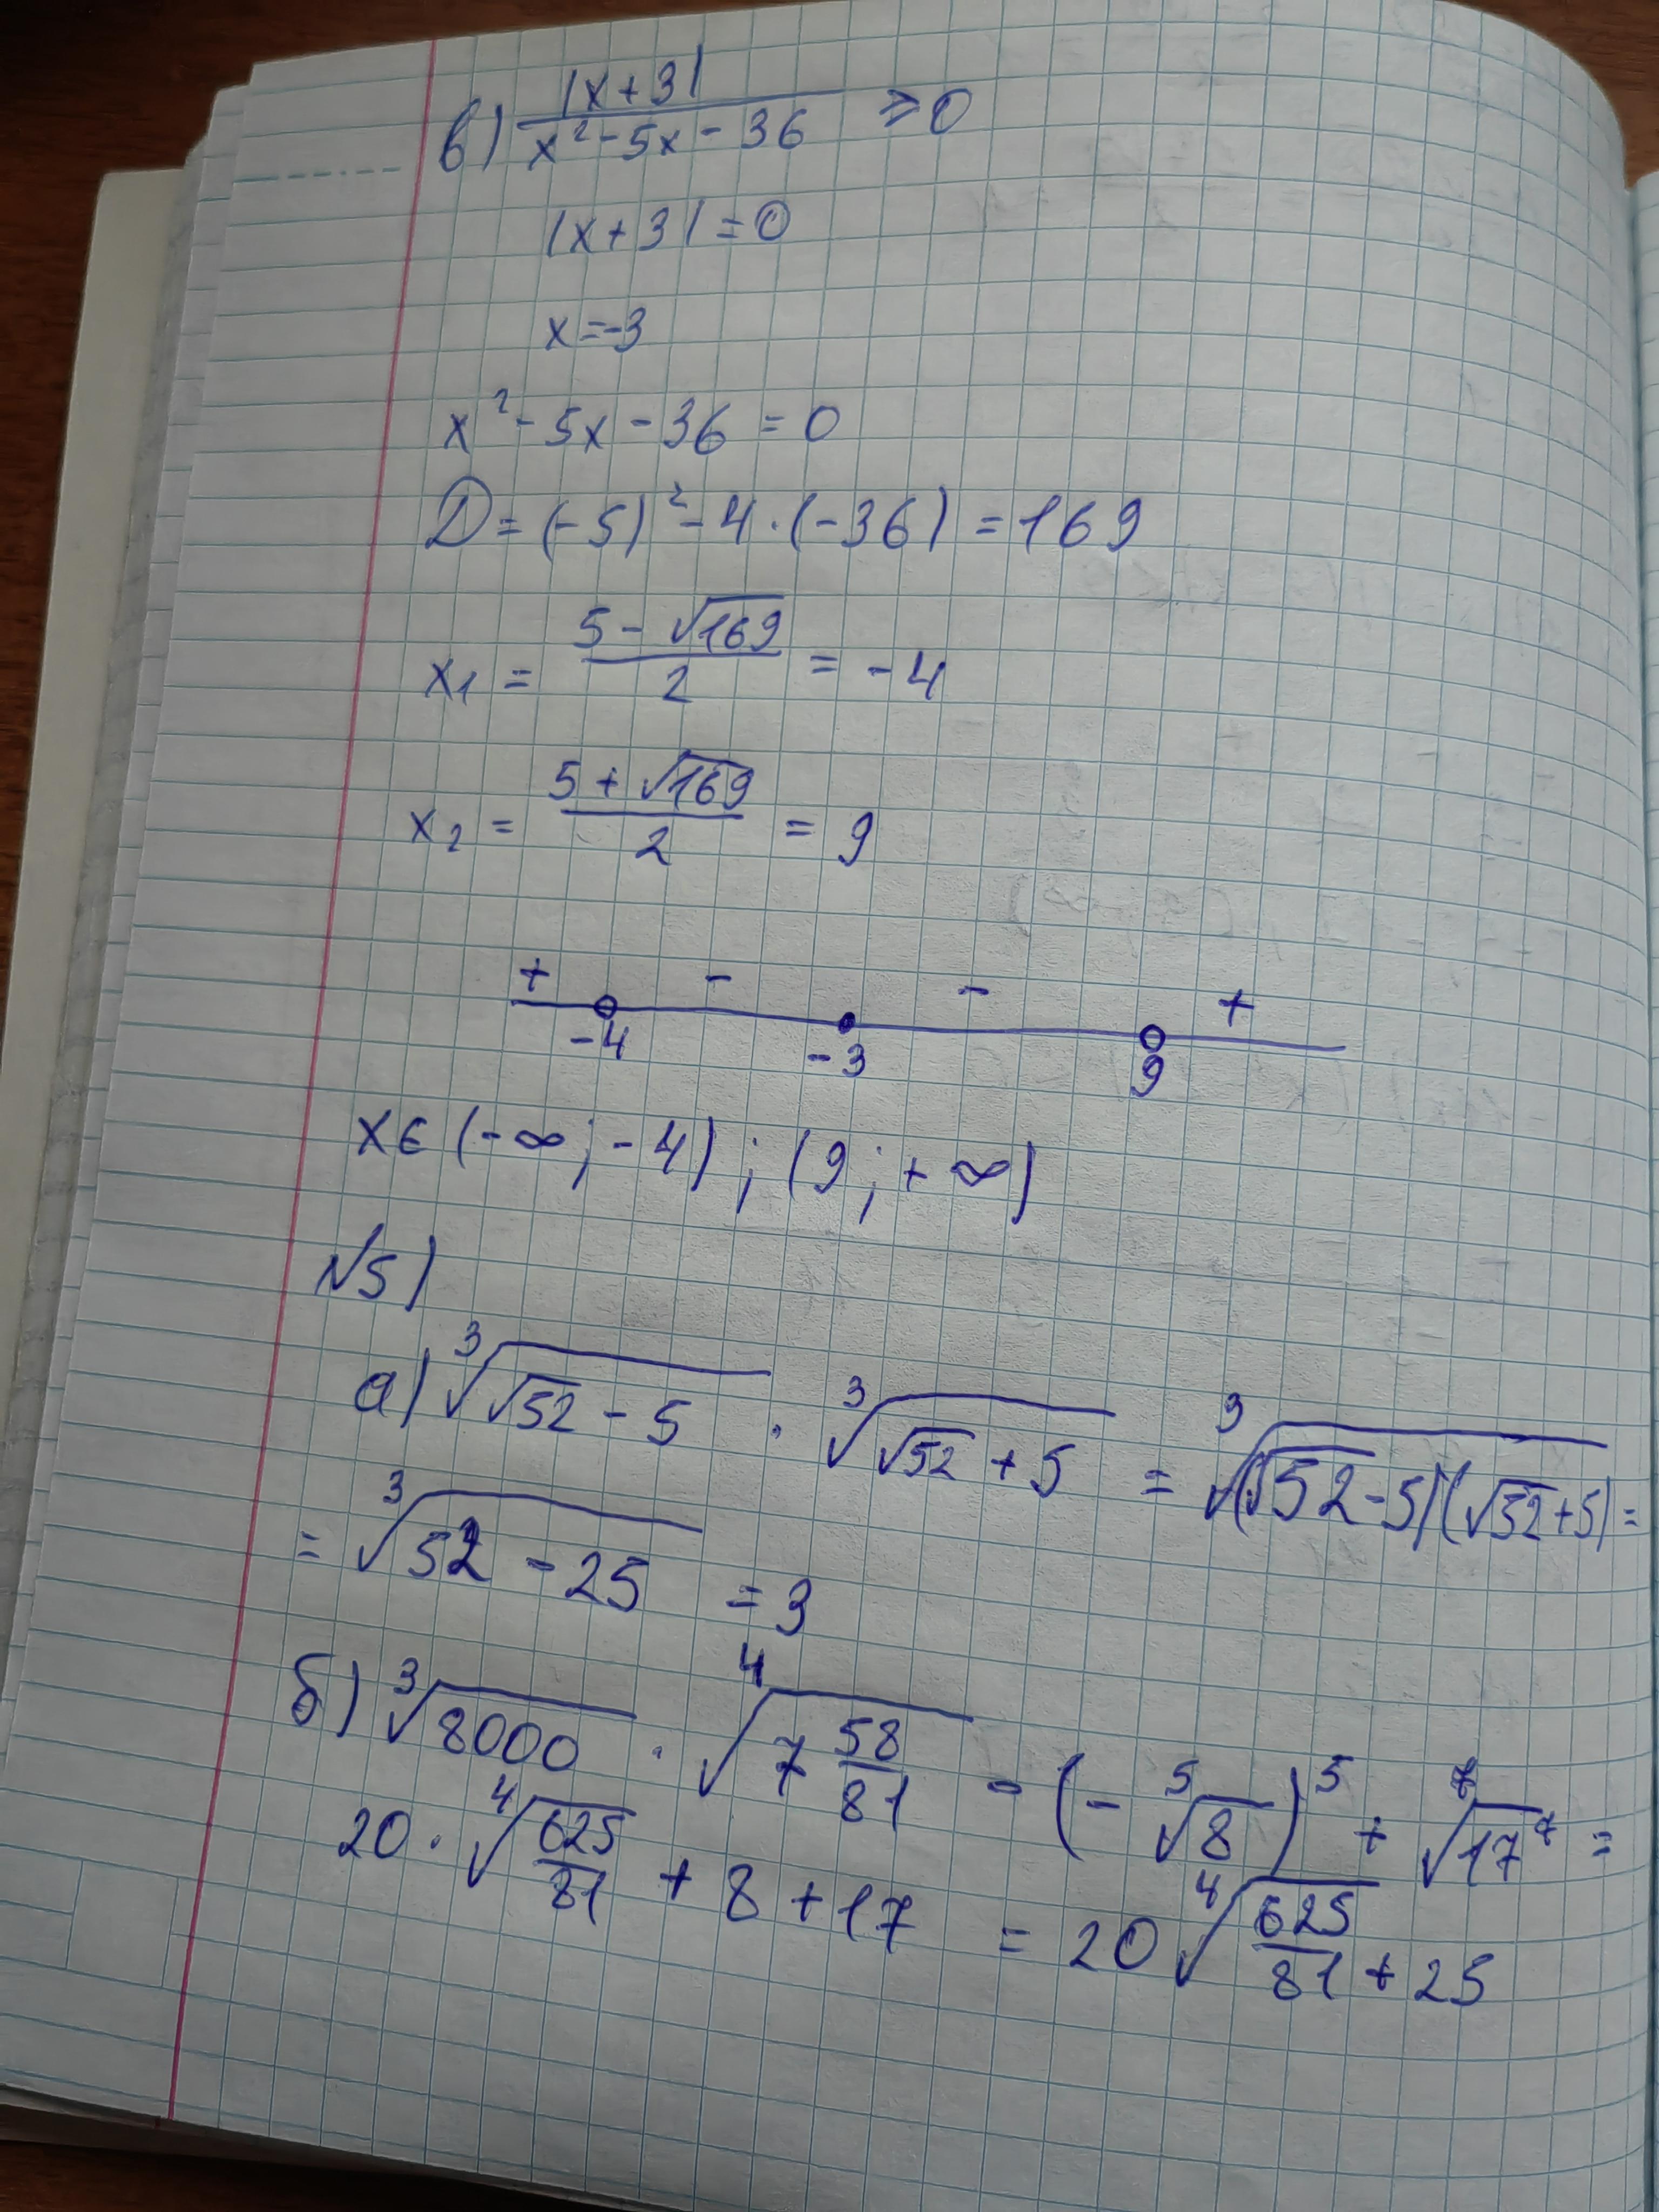 в) |x+3| / (x² - 5x - 36) ≥ 0
|x+3| = 0
x = -3
x² - 5x - 36 = 0
D = (-5)² - 4 · (-36) = 169
x₁ = (5 - √169) / 2 = -4
x₂ = (5 + √169) / 2 = 9
+ - - +
-4 -3 9
x ∈ (-∞; -4); (9; +∞)
№5)
а) ∛(√52 - 5) · ∛(√52 + 5) = ∛((√52 - 5)(√52 + 5)) =
= ∛(52 - 25) = 3
б) ∛8000 · ⁴√(7 58/81) - (-⁵√8)⁵ + ⁷√17⁷ =
20 · ⁴√(625/81) + 8 + 17 = 20 ⁴√(625/81) + 25